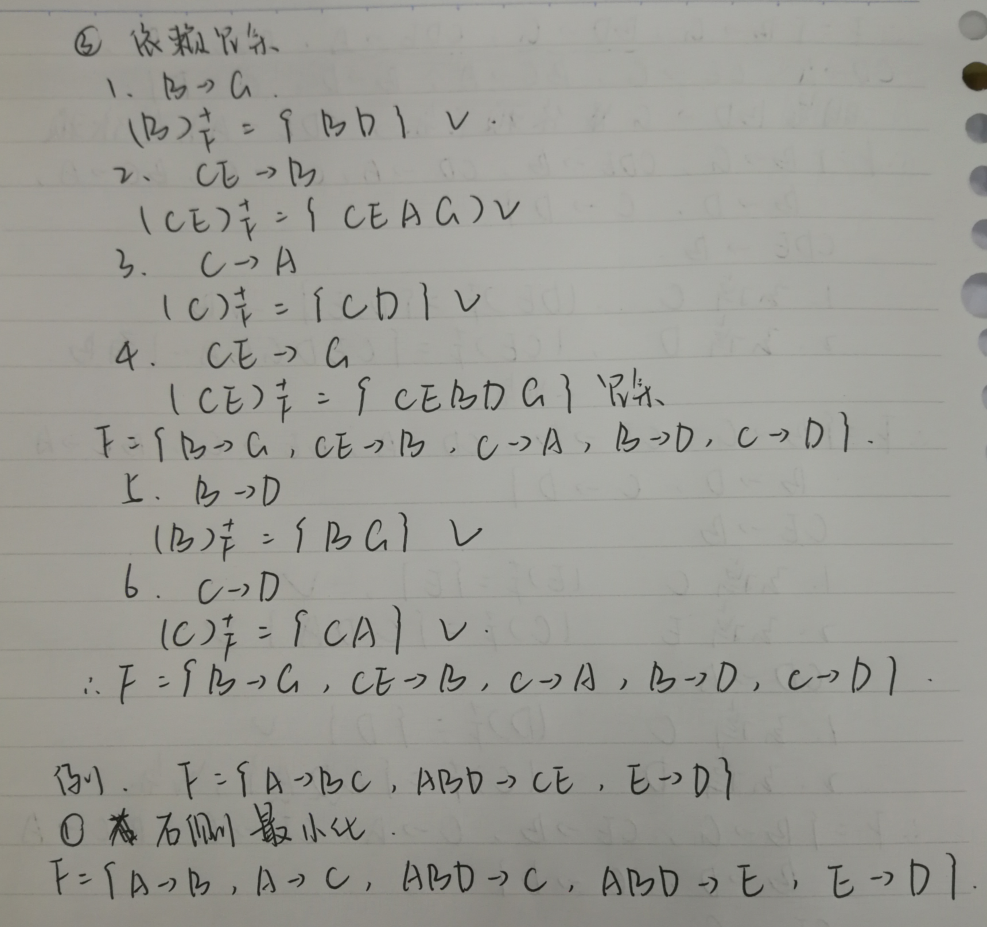 ③ 依赖冗余
1. B→G.
(B)⁺F = {BD} √.
2. CE→B
(CE)⁺F = {CEAG) √
3. C→A
(C)⁺F = {CD} √
4. CE→G
(CE)⁺F = {CEBDG} 冗余
F={B→G, CE→B, C→A, B→D, C→D}.
5. B→D
(B)⁺F = {BG} √
6. C→D
(C)⁺F = {CA} √.
∴ F={B→G, CE→B, C→A, B→D, C→D}.
例1. F={A→BC, ABD→CE, E→D}
① 右侧最小化.
F={A→B, A→C, ABD→C, ABD→E, E→D}.